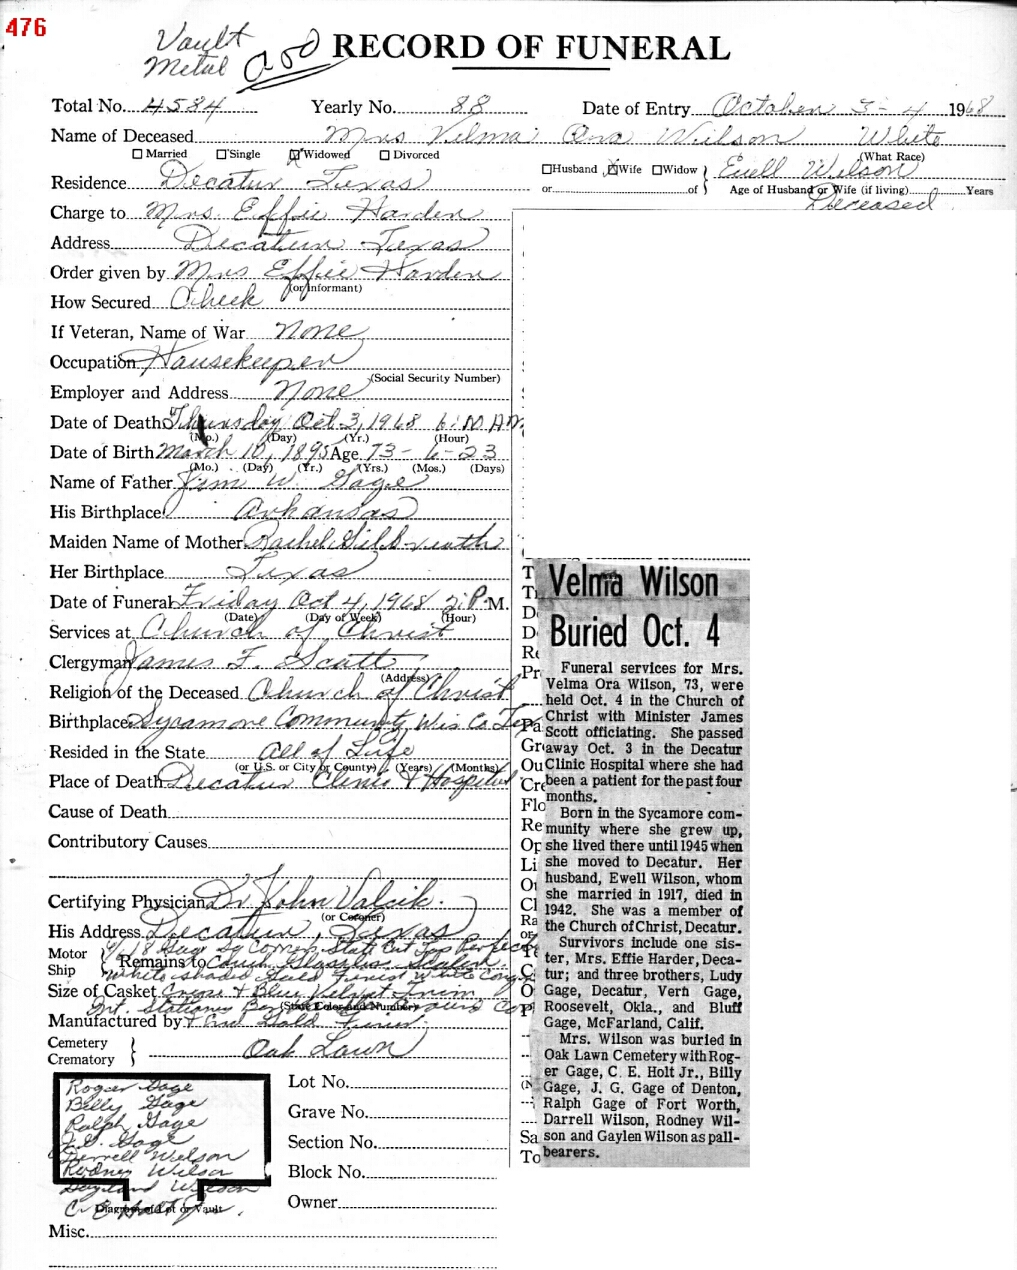 476
Vault
Metal
RECORD OF FUNERAL
Total No. 4584 Yearly No. 88 Date of Entry October 3-4 1968
Name of Deceased Mrs Velma Ora Wilson White
Married Single Widowed Divorced (What Race)
Husband Wife Widow Euell Wilson
Residence Decatur Texas
or of Age of Husband or Wife (if living) Years
Deceased
Charge to Mrs. Effie Harden
Address Decatur Texas
Order given by Mrs Effie Harden
(or informant)
How Secured Check
If Veteran, Name of War None
Occupation Housekeeper
(Social Security Number)
Employer and Address None
Date of Death Thursday Oct 3, 1968 6:10 AM
(Mo.) (Day) (Yr.) (Hour)
Date of Birth March 10, 1895 Age 73-6-23
(Mo.) (Day) (Yr.) (Yrs.) (Mos.) (Days)
Name of Father Jim W. Gage
His Birthplace Arkansas
Maiden Name of Mother Rachel Gilbreath
Her Birthplace Texas
Date of Funeral Friday Oct 4, 1968 2: P. M.
(Date) (Day of Week) (Hour)
Services at Church of Christ
Clergyman James F. Scott
(Address)
Religion of the Deceased Church of Christ
Birthplace Sycamore Community Wis Co Tex
Resided in the State All of Life
(or U.S. or City or County) (Years) (Months)
Place of Death Decatur Clinic & Hospital
Cause of Death
Contributory Causes
Certifying Physician Dr John Valcik.
(or Coroner)
His Address Decatur, Texas
Motor
Ship
Remains to
Size of Casket & Blue Velvet Trim
(State Color and Number)
Manufactured by
Cemetery
Crematory Oak Lawn
Roger Gage
Billy Gage
Ralph Gage
J.G. Gage
Derrell Wilson
Rodney Wilson
Gayland Wilson
C. E. Holt Jr.
Diagram of Lot or Vault
Lot No.
Grave No.
Section No.
Block No.
Owner
Misc.
Velma Wilson
Buried Oct. 4
Funeral services for Mrs.
Velma Ora Wilson, 73, were
held Oct. 4 in the Church of
Christ with Minister James
Scott officiating. She passed
away Oct. 3 in the Decatur
Clinic Hospital where she had
been a patient for the past four
months.
Born in the Sycamore com-
munity where she grew up,
she lived there until 1945 when
she moved to Decatur. Her
husband, Ewell Wilson, whom
she married in 1917, died in
1942. She was a member of
the Church of Christ, Decatur.
Survivors include one sis-
ter, Mrs. Effie Harder, Deca-
tur; and three brothers, Ludy
Gage, Decatur, Vern Gage,
Roosevelt, Okla., and Bluff
Gage, McFarland, Calif.
Mrs. Wilson was buried in
Oak Lawn Cemetery with Rog-
er Gage, C. E. Holt Jr., Billy
Gage, J. G. Gage of Denton,
Ralph Gage of Fort Worth,
Darrell Wilson, Rodney Wil-
son and Gaylen Wilson as pall-
bearers.